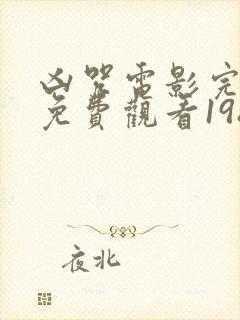 凶咒電影完
免費觀看19
夜北